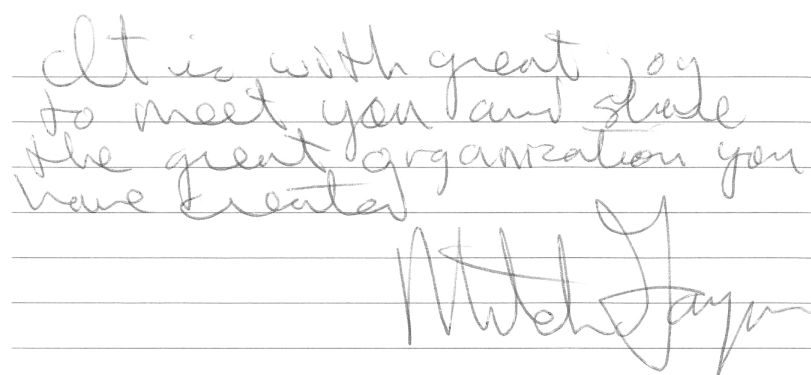 It is with great joy
to meet you and share
the great organization you
have created
Mitch